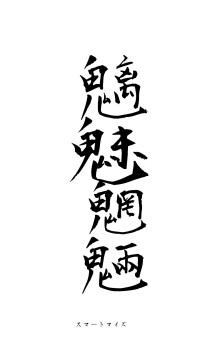 魑魅魍魎
スマートマイズ